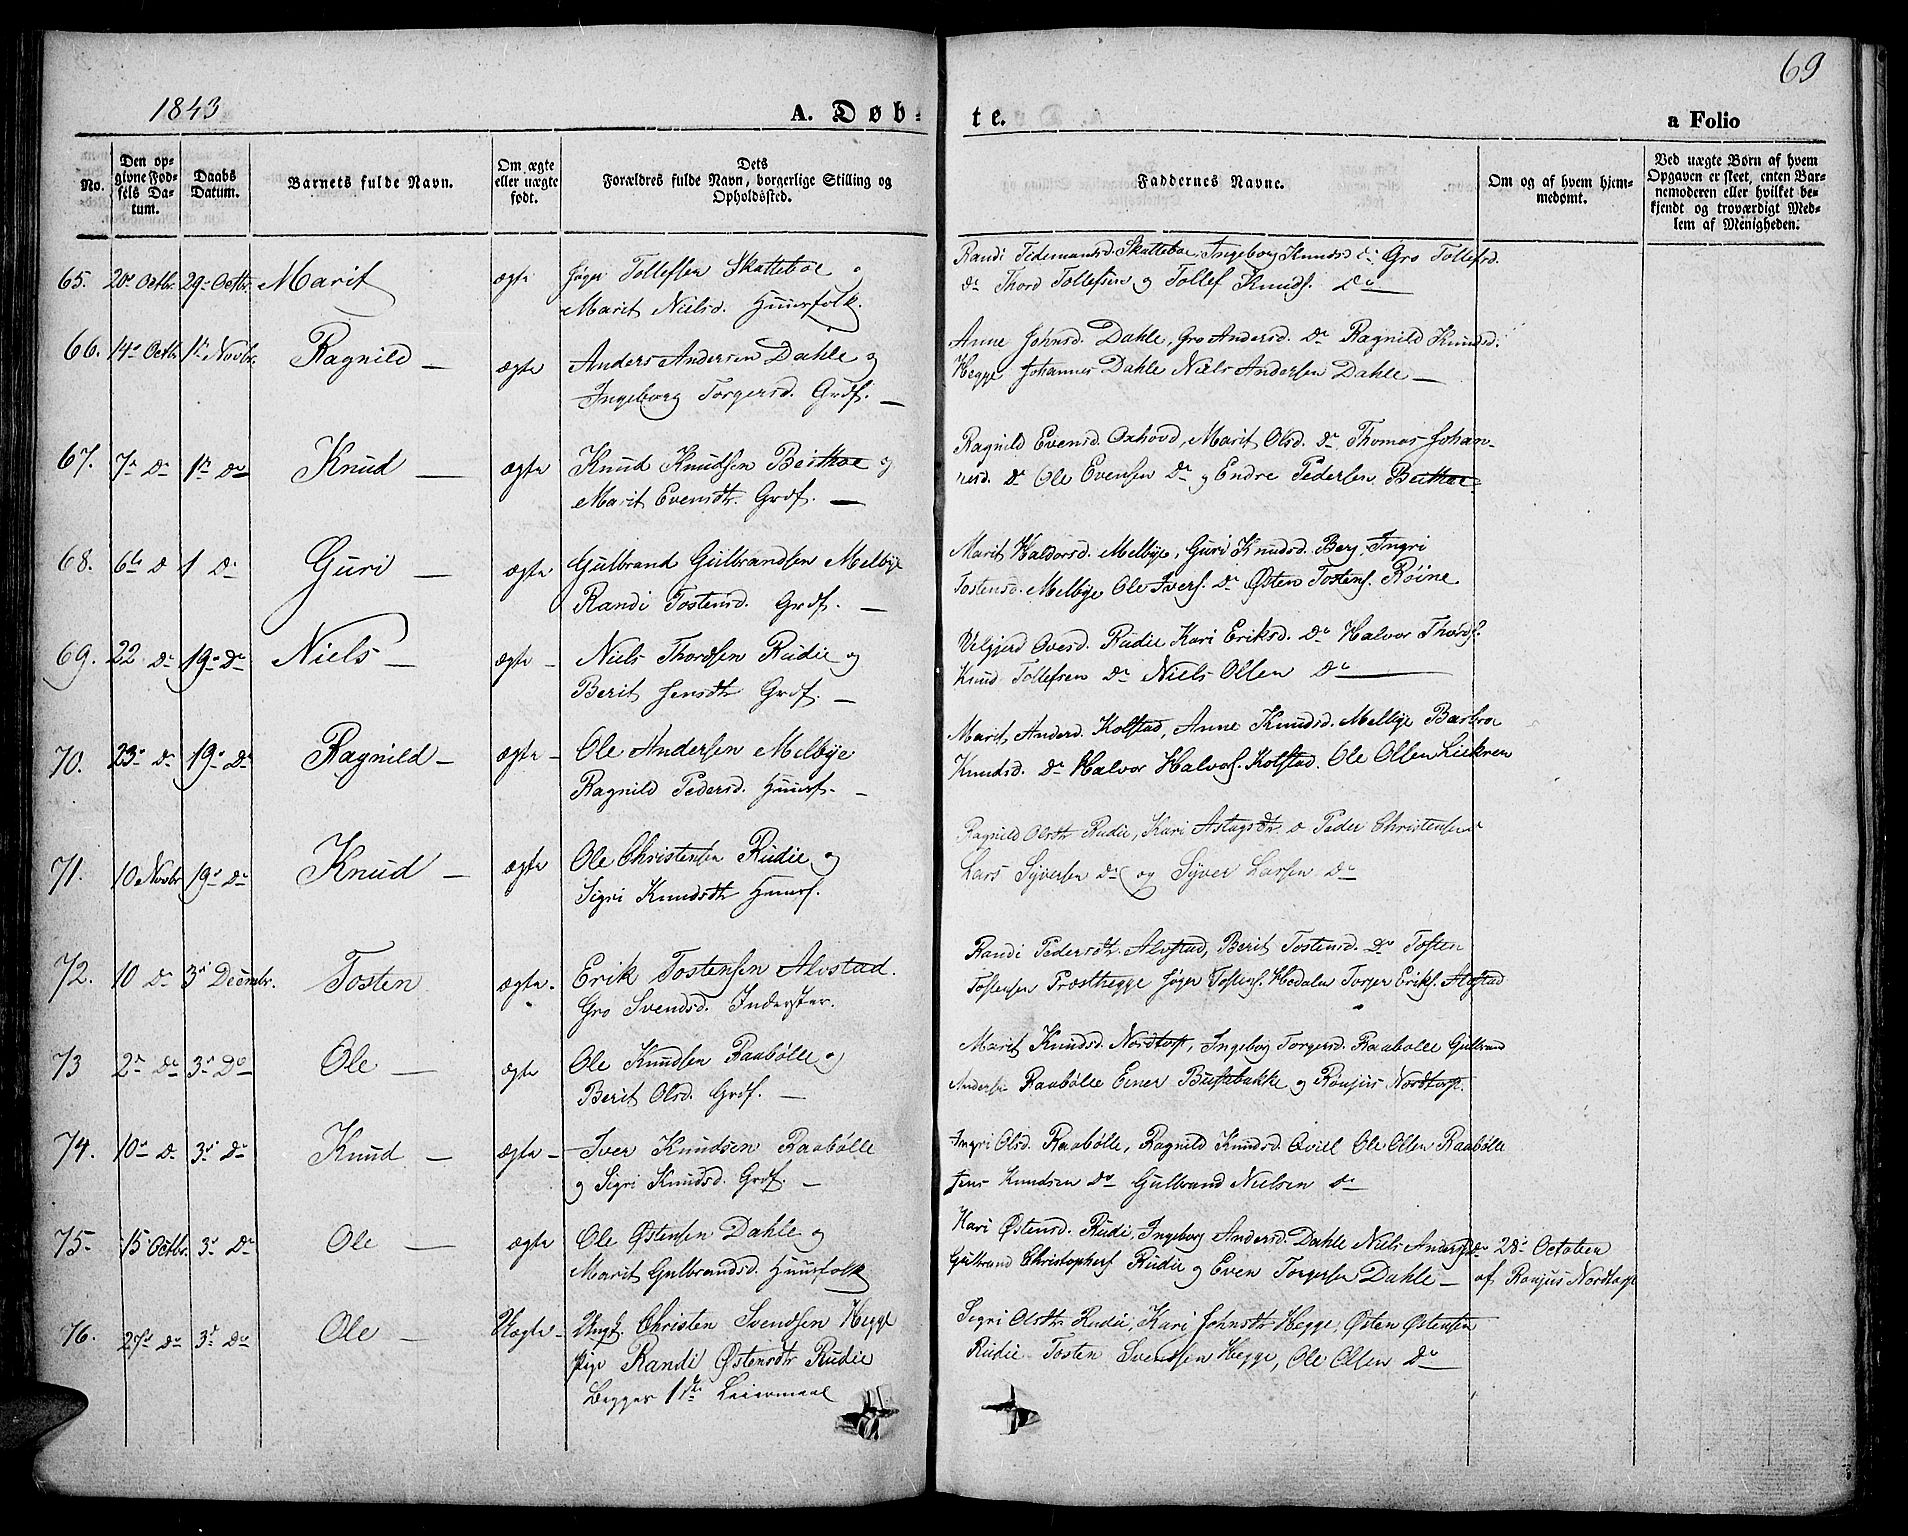 1843
A. Døb-
te.
a Folio
69
No.
Den op-
givne Fød-
sels Da-
tum.
Daabs
Datum.
Barnets fulde Navn.
Om ægte
eller uægte
født.
Dets
Forældres fulde Navn, borgerlige Stilling og
Opholdssted.
Faddernes Navne.
Om og af hvem hjem-
medømt.
Ved uægte Børn af hvem
Opgaven er skeet, enten Bar-
nemoderen eller hvilket be-
kjendt og troværdigt Med-
lem af Menigheden.
65. 20de Octbr. 29de Octbr. Marit ægte Jøger Tollefsen Skatteboe og
Marit Nielsd. Huusfolk.
Randi Tidemansd. Skatteboe, Ingeborg Knudsd. do Gro Tollefsd.
do Thord Tollefsen og Tollef Knuds. Do
66. 14de Octbr. 1te Novbr. Ragnild — ægte Anders Andersen Dahle og
Ingeborg Torgersd. Grdf. —
Anne Johnsd. Dahle, Gro Andersd. Do Ragnild Knudsd.
Hegge Johannes Dahle Niels Andersen Dahle —
67. 7de Do 1te Do Knud — ægte Knud Knudsen Beithoe og
Marit Evensdtr. Grdf. —
Ragnild Evensd. Oxhovd, Marit Olsd. Do Thomas Johan-
nesd. Do Ole Evensen Do og Endre Pedersen Beithoe.
68. 6te D 1 Do Guri — ægte Gulbrand Gulbrandsen Melbye
Randi Tostensd. Grdf. —
Marit Haldorsd. Melbye, Guri Knudsd. Berg, Ingri
Tostensd. Melbye Ole Ivers. Do Østen Tostens. Røine
69. 22 Do 19de Do Niels — ægte — Niels Thordsen Rudie og
Berit Jensdtr Grdf. —
Velgjerd Ovesd. Rudie Kari Eriksd. Do Halvor Thords.
Knud Tollefsen Do Niels Olsen Do —
70. 23de Do 19de Do Ragnild — ægte — Ole Andersen Melbye
Ragnild Pedersd. Huusf. —
Marit Andersd. Kolstad, Anne Knudsd. Melbye Barbroe
Knudsd. Do Halvor Halvors. Kolstad. Ole Olsen Liekren
71. 10 Novbr 19de Do Knud — ægte Ole Christensen Rudie og
Sigri Knudsdtr Huusf.
Ragnild Olsdtr Rudie, Kari Aslagsdtr. D Peder Christensen
Lars Syversen Do og Syver Larsen Do
72. 10 Do 3de Decmbr. Tosten ægte. Erik Tostensen Alvstad.
Gro Svendsd. Inderster.
Randi Pedersdtr. Alvstad, Berit Tostensd. Do Tosten
Tostensen Præsthegge Jøger Tostens. Hedalen Torger Eriks. Alvstad
73 2de Do 3de Do Ole — ægte Ole Knudsen Raabølle og
Berit Olsd. Grdf. —
Marit Knudsd. Nordtorp, Ingeborg Torgersd. Raabølle Gulbrand
Andersen Raabølle Einer Bustebakke og Rønjus Nordtorp.
74. 10de D. 3de Do Knud — ægte — Iver Knudsen Raabølle
og Sigri Knudsd. Grdf. —
Ingri Olsd. Raabølle, Ragnild Knudsd. Qviil Ole Olsen Raabølle
Jens Knudsen Do Gulbrand Nielsen Do
75. 15 Octbr. 3de Do Ole — ægte Ole Østensen Dahle og
Marit Gulbrandsd. Huusfolk
Kari Østensd. Rudie, Ingeborg Andersd. Dahle Niels Anders. do
Gulbrand Christophers Rudie og Even Torgersen Dahle —
28de October
af Ronjus Nordtorp
76. 27de Do 3de Do Ole — Uægte — Ungk. Christen Svendsen Hegge
pige Randi Østensdtr Rudie
Begges 1ste Leiermaal
Sigri Olsdtr. Rudie, Kari Johnsdtr Hegge, Østen Østensen
Rudie Tosten Svendsen Hegge, Ole Olsen Do